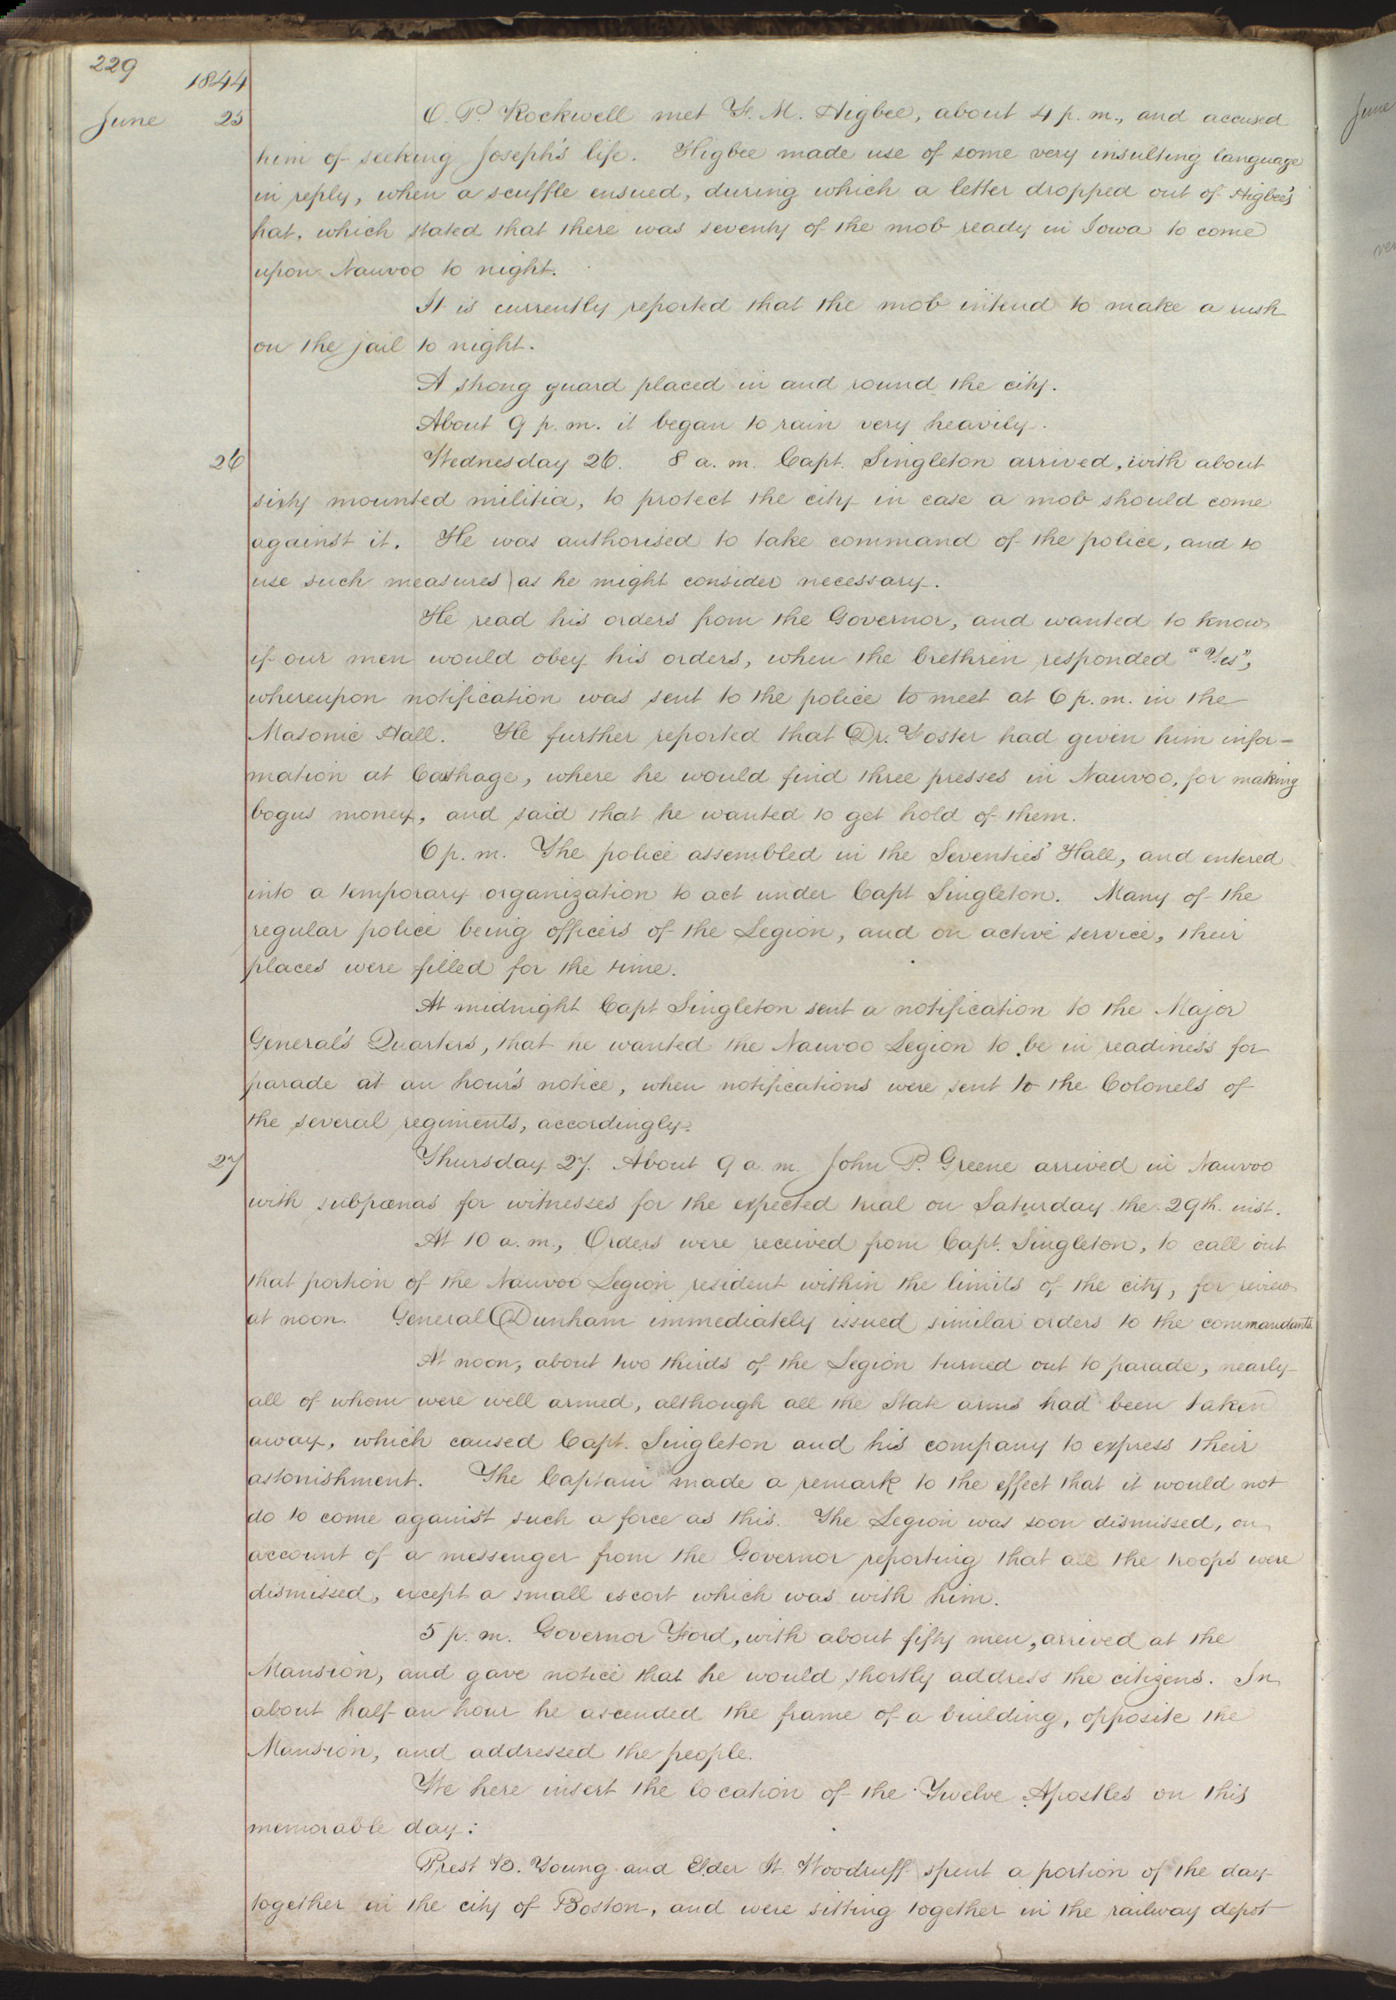 229
1844
June 25 O. P. Rockwell met F. M. Higbee, about 4 p. m., and accused
him of seeking Joseph's life. Higbee made use of some very insulting language
in reply, when a scuffle ensued, during which a letter dropped out of Higbee's
hat, which stated that there was seventy of the mob ready in Iowa to come
upon Nauvoo to night.
It is currently reported that the mob intend to make a rush
on the jail to night.
A strong guard placed in and round the city.
About 9 p. m. it began to rain very heavily.
26 Wednesday 26. 8 a. m. Capt. Singleton arrived, with about
sixty mounted militia, to protect the city in case a mob should come
against it. He was authorised to take command of the police, and to
use such measures as he might consider necessary.
He read his orders from the Governor, and wanted to know
if our men would obey his orders, when the brethren responded "Yes",
whereupon notification was sent to the police to meet at 6 p. m. in the
Masonic Hall. He further reported that Dr. Foster had given him infor-
mation at Carthage, where he would find three presses in Nauvoo, for making
bogus money, and said that he wanted to get hold of them.
6 p. m. The police assembled in the Seventies' Hall, and entered
into a temporary organization to act under Capt Singleton. Many of the
regular police being officers of the Legion, and on active service, their
places were filled for the time.
At midnight Capt Singleton sent a notification to the Major
General's Quarters, that he wanted the Nauvoo Legion to be in readiness for
parade at an hour's notice, when notifications were sent to the Colonels of
the several regiments, accordingly.
27 Thursday 27. About 9 a. m. John P. Greene arrived in Nauvoo
with subpœnas for witnesses for the expected trial on Saturday the 29th. inst.
At 10 a. m., Orders were received from Capt. Singleton, to call out
that portion of the Nauvoo Legion resident within the limits of the city, for review
at noon. General Dunham immediately issued similar orders to the commandants.
At noon, about two thirds of the Legion turned out to parade, nearly
all of whom were well armed, although all the State arms had been taken
away, which caused Capt. Singleton and his company to express their
astonishment. The Captain made a remark to the effect that it would not
do to come against such a force as this. The Legion was soon dismissed, on
account of a messenger from the Governor reporting that all the troops were
dismissed, except a small escort which was with him.
5 p. m. Governor Ford, with about fifty men, arrived at the
Mansion, and gave notice that he would shortly address the citizens. In
about half an hour he ascended the frame of a building, opposite the
Mansion, and addressed the people.
We here insert the location of the Twelve Apostles on this
memorable day:
Prest B. Young and Elder W. Woodruff spent a portion of the day
together in the city of Boston, and were sitting together in the railway depot
June